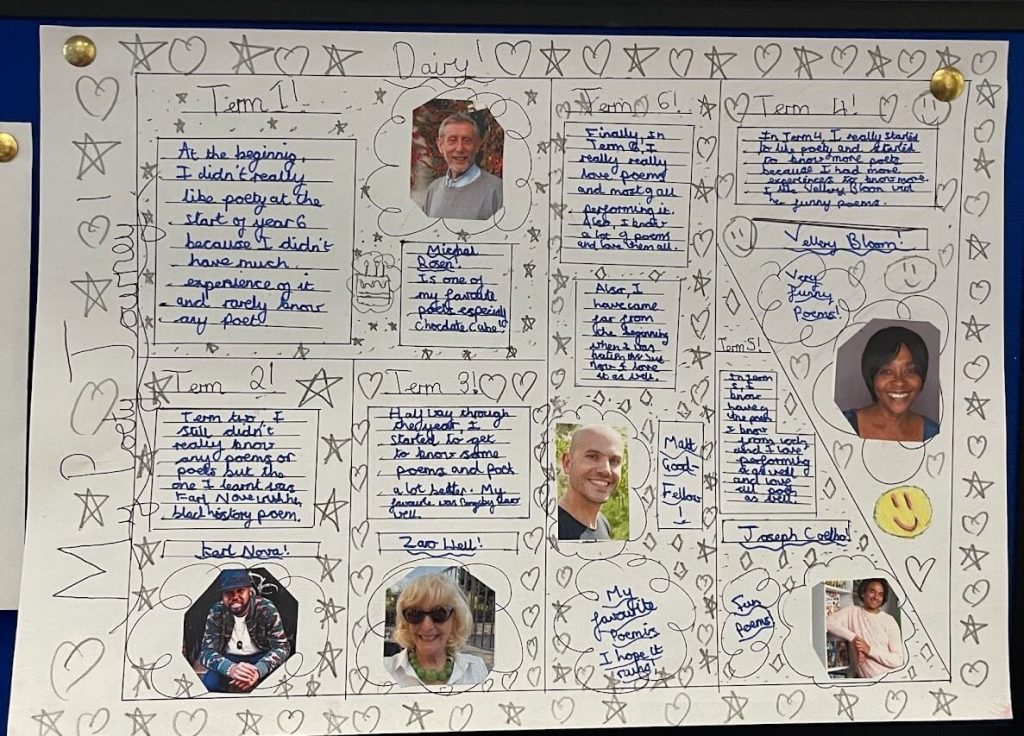 Daivy!
MY POETRY JOURNEY
Term 1!
At the beginnig,
I didn't really
like poety at the
start of year 6
because I didn't
have much
experience of it
and rarely know
any poet
Michal
Rosen!
Is one of
my favourite
poets especially
Chocolate Cake!
Term 2!
Term two, I
still didn't
really know
any poems or
poets but the
one I learnt was
Karl Nova with his
black history poem.
Karl Nova!
Term 3!
Half way through
the year, I
started to get
to know some
poems and
a lot better. My
favourite was
well.
Term 6!
Finally, In
Term 6, I
really really
love poems
and most all
performing it.
Also, I know
a lot of poems
and love them all.
Also I
have come
far from
the beginning
when I was
hating this but
now I love
it as well.
Matt
Good-
Fellow!
My
favourite
Poem is
I hope it
rains!
Term 4!
In Term 4, I really started
to like poety, and started
to know more poets
because I had more
experiences to know more.
I like Vellery Bloom and
her funny poems.
Vellery Bloom!
Very
funny
Poems!
Term 5!
In term
5, I
know
the poem
I know
from
and I love
performing
it as well
and love
as well.
Joseph Coelho!
Fun
poems!